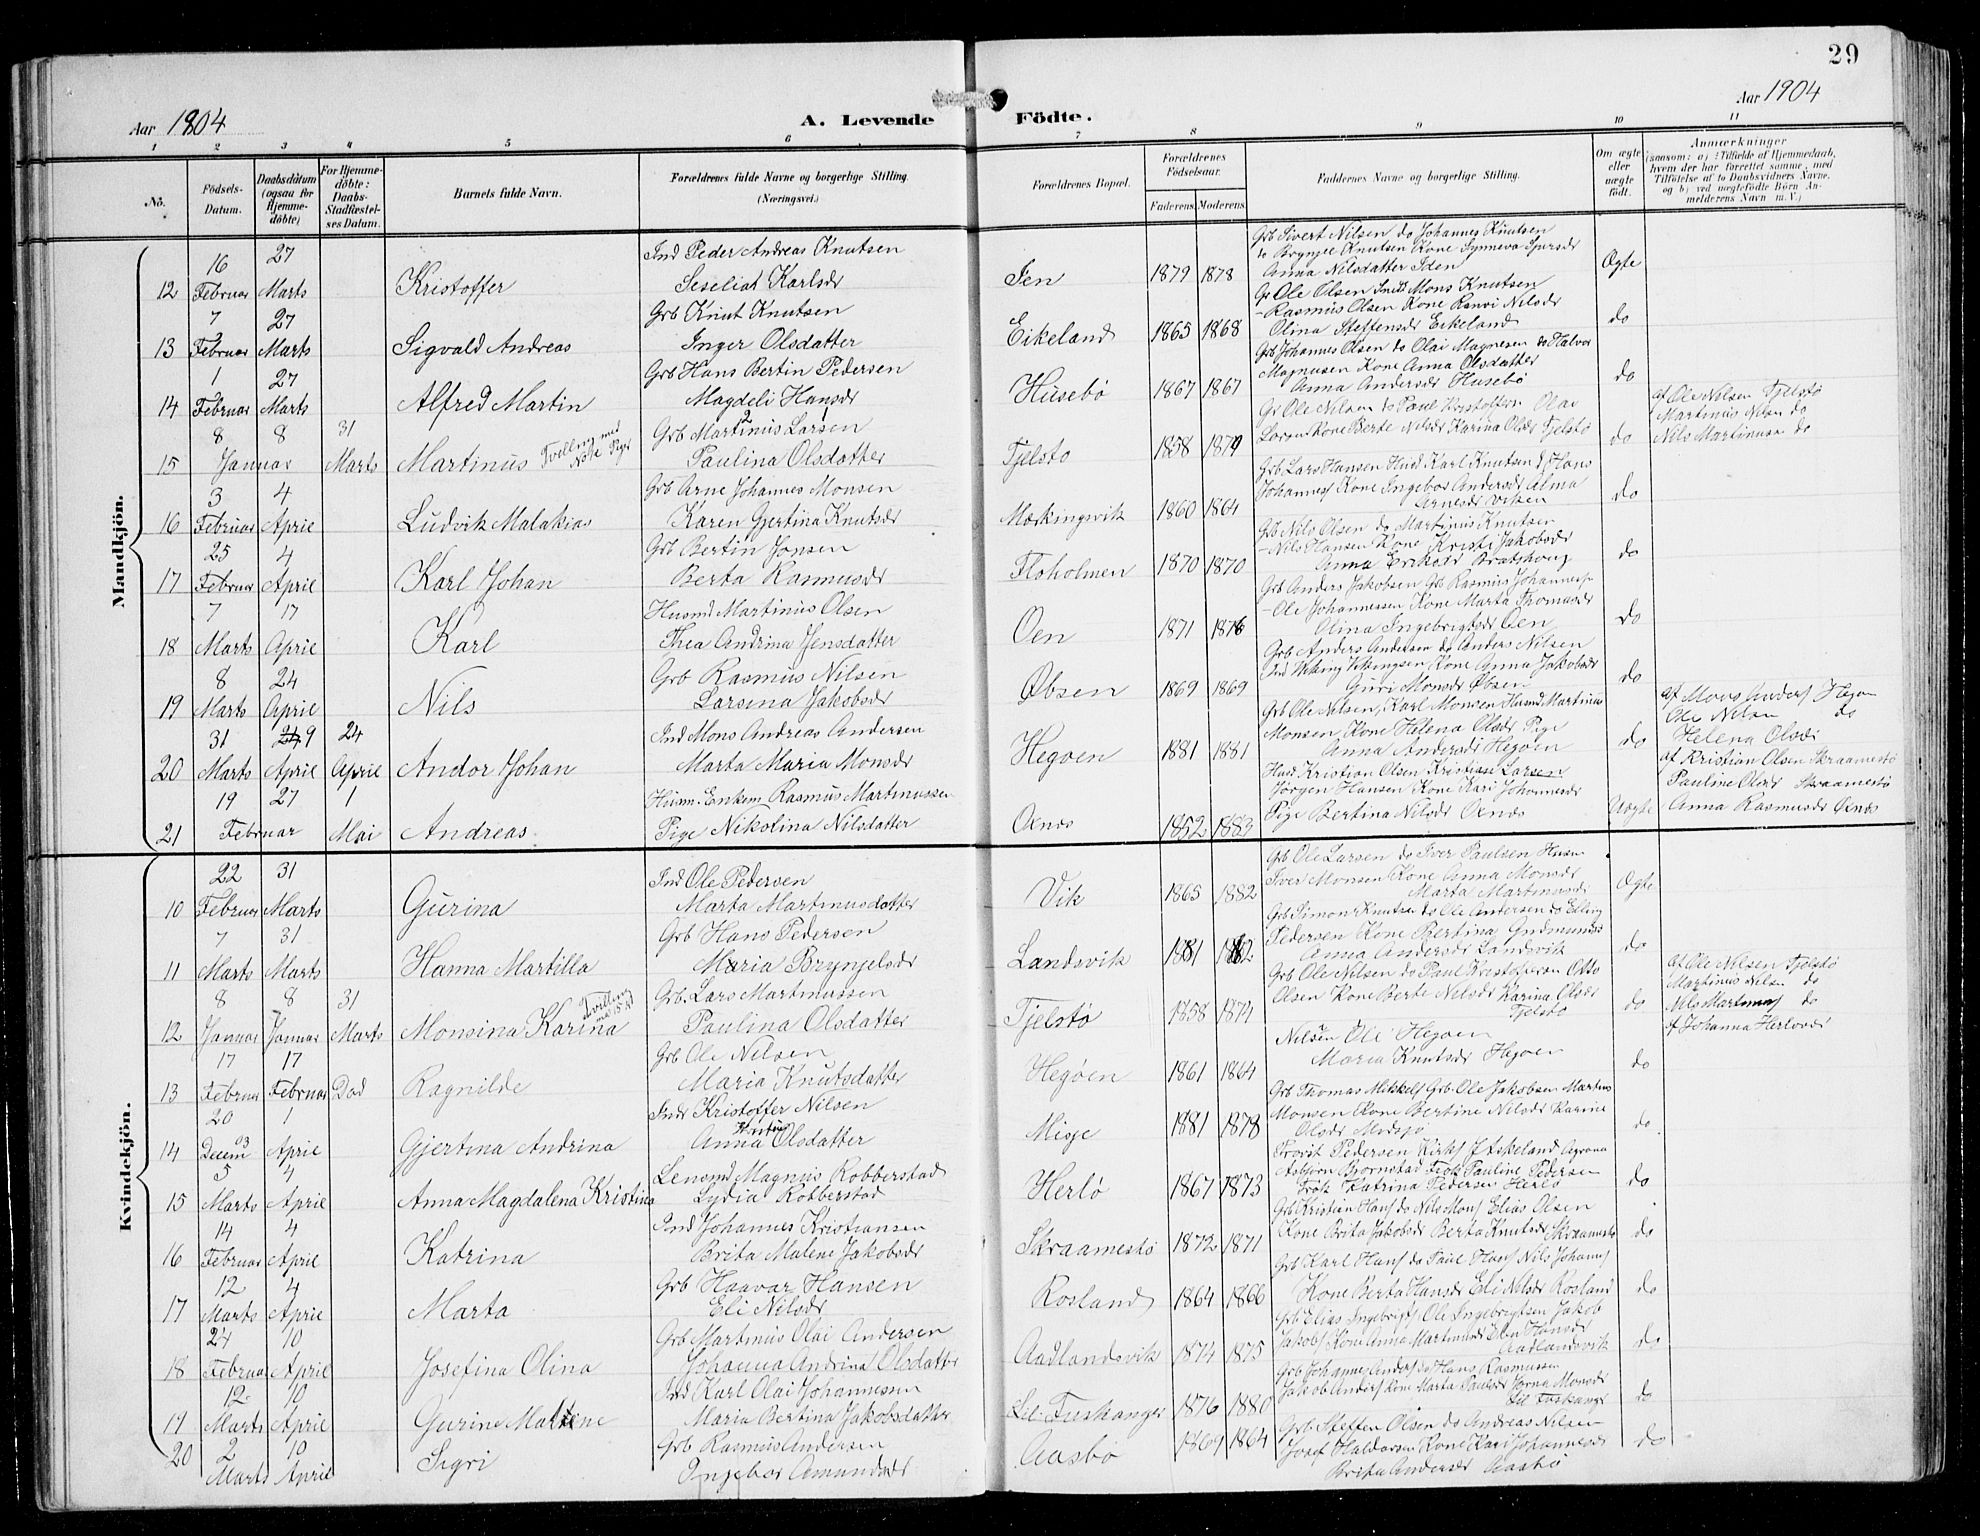 29
Aar 1904
A. Levende Födte.
Aar 1904
1 2 3 4 5 6 7 8 9 10 11
No. Födsels-Datum. Daabsdatum (ogsaa for Hjemme-döbte) For Hjemme-döbte: Daabs-Stadfæstel-ses Datum. Barnets fulde Navn. Forældrenes fulde Navne og borgerlige Stilling. (Næringsvei.) Forældrenes Bopæl. Forældrenes Födselsaar. Faderens. Moderens. Faddernes Navne og borgerlige Stilling. Om ægte eller uægte födt. Anmærkninger
Mandkjön.
12 16 Februar 27 Marts Kristoffer Ind Peder Andreas Knutsen
1879 1878 Grb Sivert Nilsen do Johannes Knutsen
Anna Nilsdatter Iden Ægte
13 7 Februar 27 Marts Sigvald Andreas Grb Knut Knutsen
Inger Olsdatter Eikeland 1865 1868 Gr Ole Olsen Mons Knutsen
Rasmus Olsen Kone Nilsdr
Olina Steffensdr Eikeland do
14 1 Februar 27 Marts Alfred Martin Grb Hans Bertin Pedersen
Magdeli Hansdr Husebö 1867 1867 Grb Johannes Olsen do Olai Magnesen do Halvor
Magnusen Kone Anna Olsdatter
Anna Andersdr Husebö do
15 8 8 Januar 31 Marts Martinus Tvilling med No 12 Piger Grb Martinus Larsen
Paulina Olsdatter Tjelstø 1858 1874 Gr Ole Nilsen do Paul Kristoffersn
Kone Berte Nilsdr Karina Olsdr Tjelstø do af Ole Nilsen Tjelstø
Martinus Nilsen do
Nils Martinusn do
16 3 Februar 4 April Ludvik Malakias Grb Arne Johannes Monsen
Karen Gjertina Knutsdr Mærkingsvik 1860 1864 Grb Lars Hansen Karl Knutsen do Hans
Johannes Kone Ingebor Andersdr Alma
Arnesdr Viken do
17 25 Februar 4 April Karl Johan Grb Bertin Jonsen
Berta Rasmusdr Floholmen 1870 1870 Grb Nils Olsen do Martinus Knutsen
Nils Hansen Kone Kristi Jakobsdr
Anna Eriksdr do
18 7 Marts 17 April Karl Husmd Martinus Olsen
Thea Andrina Jensdatter Oen 1871 1876 Grb Anders Jakobsen Grb Rasmus Johannesn
Ole Johannessen Kone Marta Thomasdr
Olina Ingebrigtsdr Oen do
19 8 Marts 24 April Nils Grb Rasmus Nilsen
Larsina Jakobsdr Øbsen 1869 1869 Grb Anders Andersen do Anders Nilsen
Ind Viking Vikingsen Kone Anna Jakobsdr
Guri Monsdr Øbsen do
20 31 Marts 9 April 24 April Andor Johan Ind Mons Andreas Andersen
Marta Maria Monsdr Hegøen 1881 1881 Grb Ole Nilsen, Karl Monsen Husmd Martinus
Monsen, Kone Helena Olsdr Pige
Anna Andersdr Hegøen do af Mons Anders Hegøen
Ole Nilsen do
Helena Olsdr
21 19 27 Februar 1 Mai Andreas Husm. Enkem Rasmus Martinussen
Pige Nikolina Nilsdatter Oxnes 1852 1883 Husd Kristian Olsen Larsen
Jörgen Hansen Kone Kari Johannesdr
Pige Bertina Nilsdr Oxnes Uægte af Kristian Olsen Skraamestø
Pauline Olsdr Skraamestø
Anna Rasmusdr Øxnes
Kvindekjön.
10 22 Februar 31 Marts Gurina Ind Ole Pedersen
Marta Martinusdatter Vik 1865 1882 Grb Ole Larsen do Iver Paulsen Husm
Iver Monsen Kone Anna Monsdr
Marta Martinusdr Ægte
11 7 Marts 31 Marts Hanna Martilla Grb Hans Pedersen
Maria Brynjelsdr Landsvik 1881 1882 Grb Simon Knutsen do Ole Andersen do Elling
Pedersen Kone Bertina Gudmunds
Anna Andersdr Landsvik do
12 8 Januar 8 Januar 31 Marts Monsina Karina Tvilling Grb. Lars Martinussen
Paulina Olsdatter Tjelstø 1858 1874 Grb Ole Nilsen do Paul Kristofferson Otto
Olsen Kone Berte Nilsdr Karina Olsdr
Tjelstø do af Ole Nilsen Tjelstø
Martinus Nilsen do
Nils Martinus do
13 17 Februar 17 Februar Död Ragnilde Grb Ole Nilsen
Maria Knutsdatter Hegøen 1861 1864 Nilsen Ole Hegøen
Maria Knutsdr Hegøen do af Johanna Herlovdr
14 20 Decem 03 1 April Gjertina Andrina Indr Kristoffer Nilsen
Anna Olsdatter Misje 1881 1878 Grb Thomas Mikkels Grb Ole Jakobsen Martins
Monsen Kone Bertine Nilsdr Karine
Olsdr do
15 5 Marts 4 April Anna Magdalena Kristina Lensmd Magnus Robberstad
Lydia Robberstad Herlø 1867 1873 Pedersen Kirks Askeland
Asbjörn Bjornstad Frök Pauline Pedersen
Frök Katrina Pedersen Herlø do
16 14 Februar 4 April Katrina Ind Johannes Kristiansen
Brita Malene Jakobsdr Skraamestø 1872 1871 Grb Kristian Hans do Nils Mons Elias Olsen
Kone Brita Jakobsdr Berta Knutsdr Skraamestø do
17 12 Marts 4 April Marta Grb Haavar Hansen
Eli Nilsdr Rosland 1864 1866 Grb Karl Hans do Paul Hans Nils Johans
Kone Berta Hansdr Eli Nilsdr Rosland do
18 24 Februar 10 April Josefina Olina Grb Martinus Olai Andersen
Johanna Andrina Olsdatter Aadlandsvik 1874 1875 Grb Elias Ingebrigts Ole Ingebrigtsen Jakob
Jakobs Kone Anna Martinusdr Elen Hansdr
Aadlandsvik do
19 12 Marts 10 April Gurine Maltene Ind Karl Olai Johannessen
Maria Bertina Jakobsdatter Lil. Fuskanger 1876 1880 Grb Johannes Anders do Hans Rasmussen
Jakob Anders Kone Marta Paulsdr Jorna Monsdr
Lil Fuskanger do
20 2 Marts 10 April Sigri Grb Rasmus Andersen
Ingebor Amundsdr Aasbø 1869 1864 Grb Steffen Olsen do Andreas Nilsen
Josef Haldorsen Kone Kari Johannesdr
Brita Andersdr Aasbø do